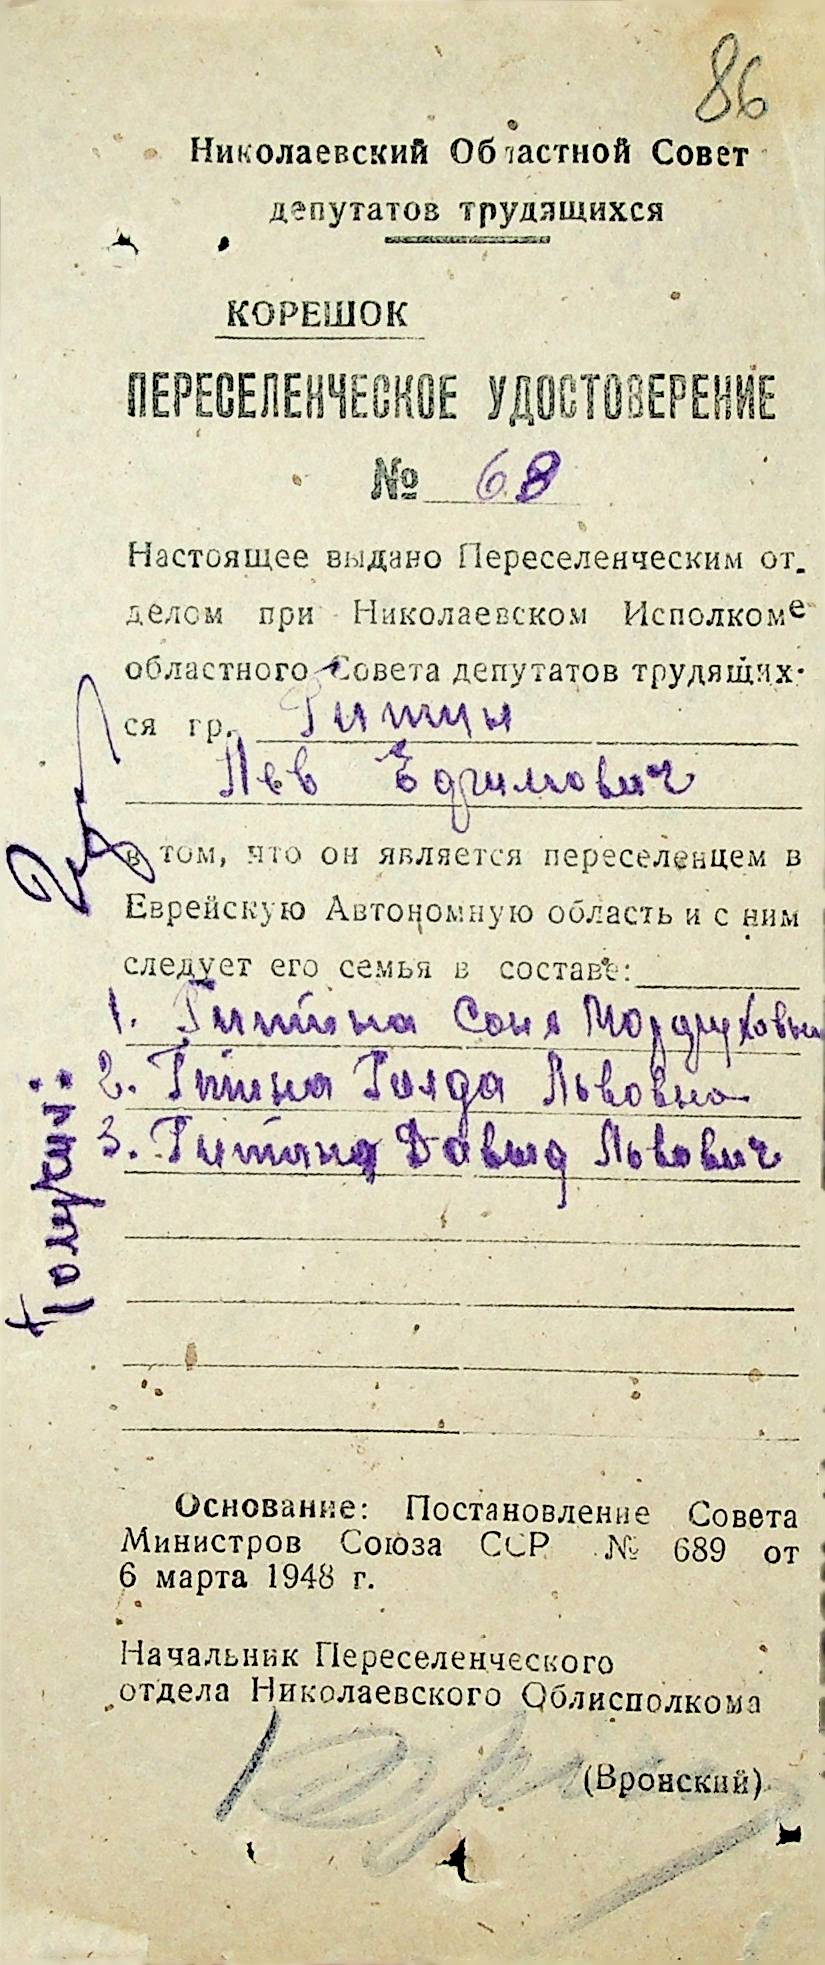 86
Николаевский Областной Совет
депутатов трудящихся
КОРЕШОК
ПЕРЕСЕЛЕНЧЕСКОЕ УДОСТОВЕРЕНИЕ
№ 68
Настоящее выдано Переселенческим от-
делом при Николаевском Исполкоме
областного Совета депутатов трудящих-
ся гр. Гитин
Лев Ефимович
в том, что он является переселенцем в
Еврейскую Автономную область и с ним
следует его семья в составе:
1. Гитина Соня Мордуховна
2. Гитина Голда Львовна
3. Гитин Давид Львович
Получил:
Основание: Постановление Совета
Министров Союза ССР № 689 от
6 марта 1948 г.
Начальник Переселенческого
отдела Николаевского Облисполкома
(Вронский)